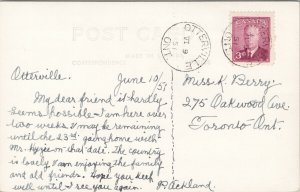 POST CARD
CORRESPONDENCE
OTTERVILLE
ONT
CANADA
Otterville.
June 10/51
My dear friend it hardly
seems possible I am here over
two weeks. I may be remaining
until the 23rd going home with
Mr. on that date. The country
is lovely, I am enjoying the family
and old friends. Hope you keep
well until I see you again.
Miss K. Berry
275 Oakwood Ave
Toronto Ont.